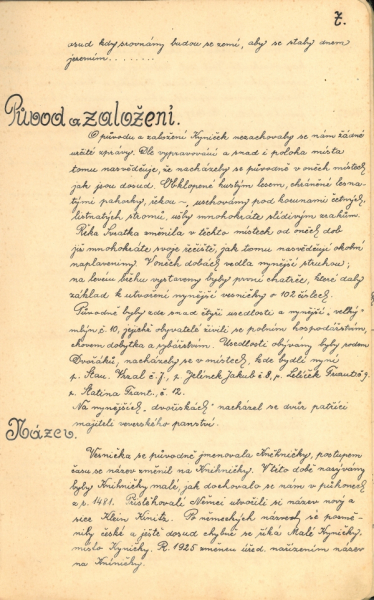 7.
osud kdy srovnány budou se zemí, aby se staly dnem
jezerním........
Původ a založení.
O původu a založení Kyniček nezachovaly se nám žádné
určité zprávy. Dle vypravování a snad i poloha místa
tomu nasvědčuje, že nacházely se původně v oněch místech
jak jsou dosud. Obklopené hustým lesem, chráněné lesna-
tými pahorky, řekou –, uschovány pod korunami četných
listnatých stromů, ušly mnohokráte slídivým zrakům.
Řeka Svratka změnila v těchto místech od oněch dob
již mnohokráte svoje řečiště, jak tomu nasvědčují okolní
naplaveniny. V oněch dobách vedla nynější struhou;
na levém břehu vystaveny byly první chatrče, které daly
základ k utvoření nynější vesničky o 102 číslech.
Původně byly zde snad čtyři usedlosti a nynější velký
mlýn č. 10, jejichž obyvatelé živili se polním hospodářstvím,
chovem dobytka a rybářstvím. Usedlosti obývány byly rodem
Dvořáků, nacházely se v místech, kde bydlí nyní
p. Stan. Vrzal č. 7, p. Jelínek Jakub č. 8, p. č. 9
p. Slatina Frant. č. 12.
Na nynějších „dvořiskách" nacházel se dvůr patřící
majiteli veverského panství.
Název.
Vesnička se původně jmenovala Kněhničky, postupem
času se název změnil na Knihničky. V této době nazývány
byly Knihničky malé, jak dochovalo se nám v půhonech
z r. 1481. Přistěhovalí Němci utvořili si název nový a
sice Klein Kinitz. Po německých názvech se poměš-
nily české a ještě dosud chybně se říká Malé Kyničky,
místo Kyničky. R. 1925 změněn úřed. nařízením název
na Kníničky.